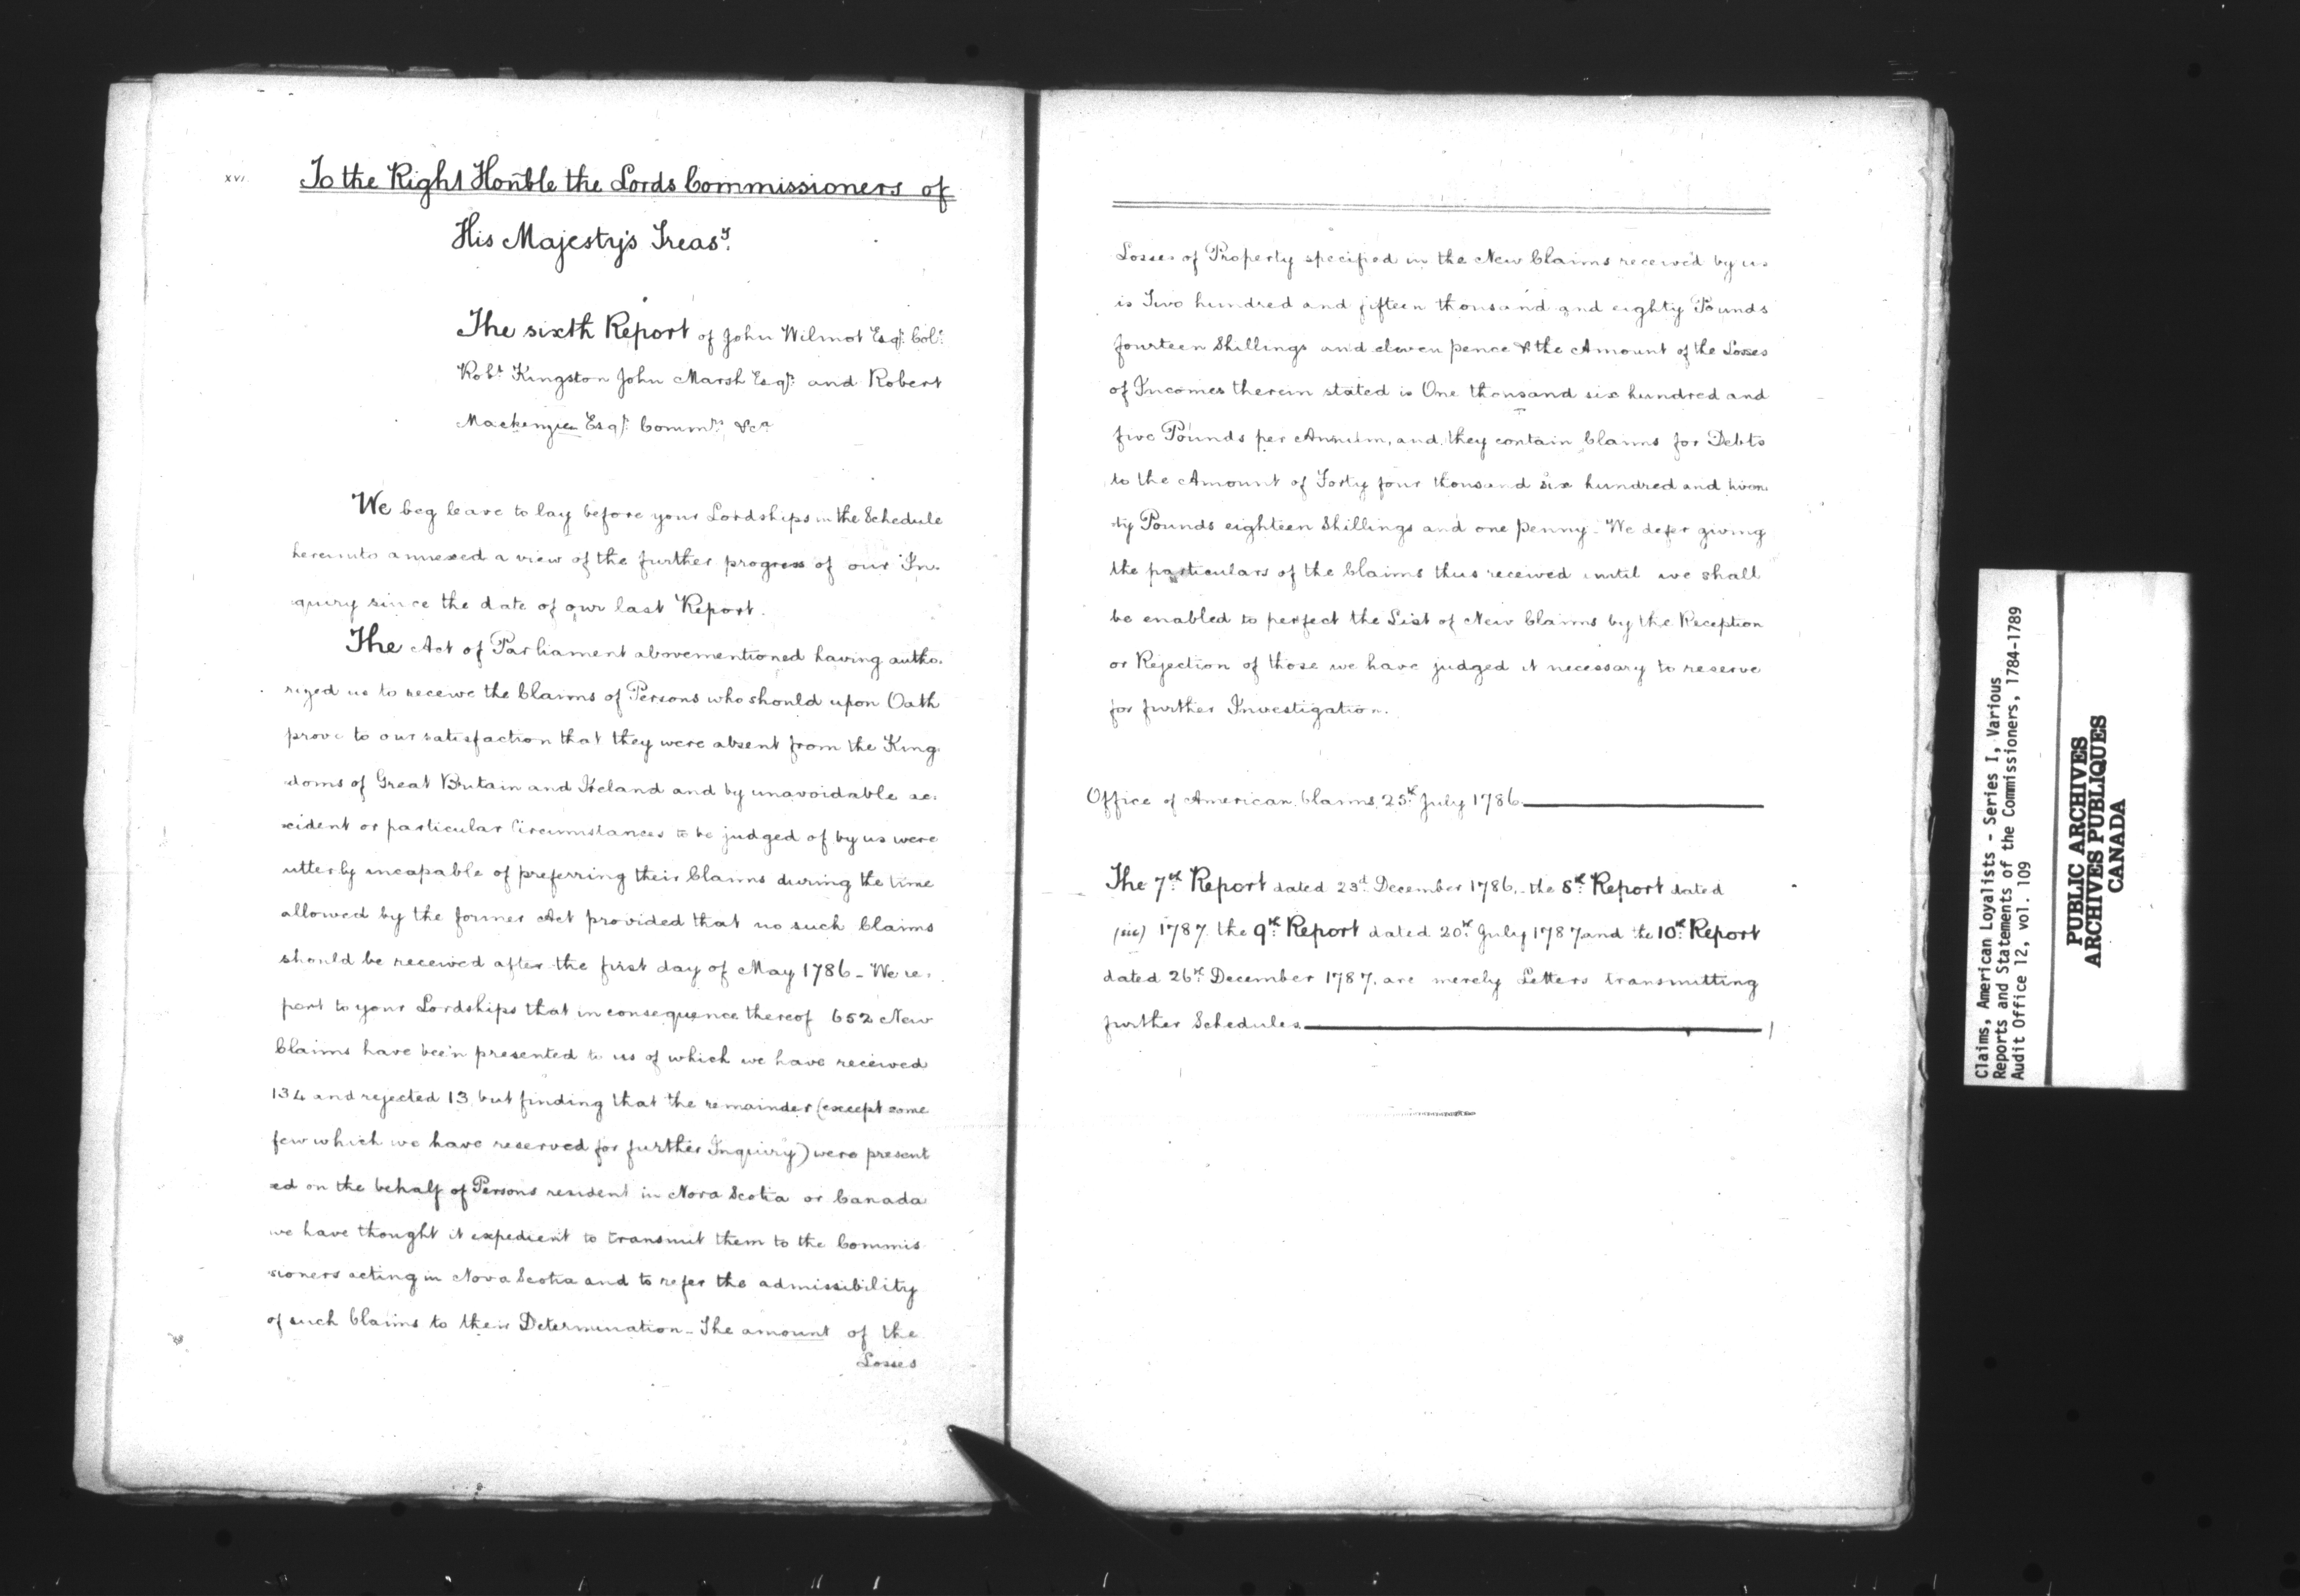 xvi.
To the Right Honble the Lords Commissioners of
His Majesty's Treasy.
The sixth Report of John Wilmot Esqr. Col.
Robt Kingston John Marsh Esqr. and Robert
Mackenzie Esqr. Commrs. &ca
We beg leave to lay before your Lordships in the Schedule
hereunto annexed a view of the further progress of our In-
quiry since the date of our last Report.
The Act of Parliament abovementioned having autho-
rized us to receive the Claims of Persons who should upon Oath
prove to our satisfaction that they were absent from the King
doms of Great Britain and Ireland and by unavoidable ac-
cident or particular Circumstances to be judged of by us were
utterly incapable of preferring their Claims during the time
allowed by the former Act provided that no such Claims
should be received after the first day of May 1786 - We re-
port to your Lordships that in consequence thereof 652 New
Claims have been presented to us of which we have received
134 and rejected 13 but finding that the remainder (except some
few which we have reserved for further Inquiry) were present
ed on the behalf of Persons resident in Nova Scotia or Canada
we have thought it expedient to transmit them to the Commis
sioners acting in Nova Scotia and to refer the admissibility
of such Claims to their Determination - The amount of the
Losses
Losses of Property specified in the New Claims received by us
is Two hundred and fifteen thousand and eighty Pounds
fourteen Shillings and eleven pence & the Amount of the Losses
of Incomes therein stated is One thousand six hundred and
five Pounds per Annum, and they contain Claims for Debts
to the Amount of Forty four thousand six hundred and twen
ty Pounds eighteen Shillings and one penny. We defer giving
the particulars of the Claims thus received until we shall
be enabled to perfect the List of New Claims by the Reception
or Rejection of those we have judged it necessary to reserve
for further Investigation.
Office of American Claims, 25th July 1786
The 7th Report dated 23d December 1786, the 8th Report dated
(sic) 1787 the 9th Report dated 20th July 1787 and the 10th Report
dated 26th December 1787, are merely Letters transmitting
further Schedules
Claims, American Loyalists - Series I, Various
Reports and Statements of the Commissioners, 1784-1789
Audit Office 12, vol. 109
PUBLIC ARCHIVES
ARCHIVES PUBLIQUES
CANADA